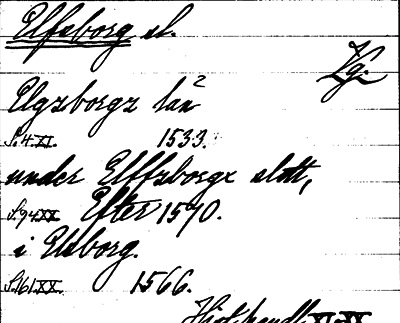 Elfsborg sl.
Vg.
Elgzborgz län 2
S. 4 XI. 1533.
under Elffzborgx slott,
S. 94 XX Efter 1570.
i Elsborg.
S. 161 XX. 1566.
Hist. handl. XI. XX